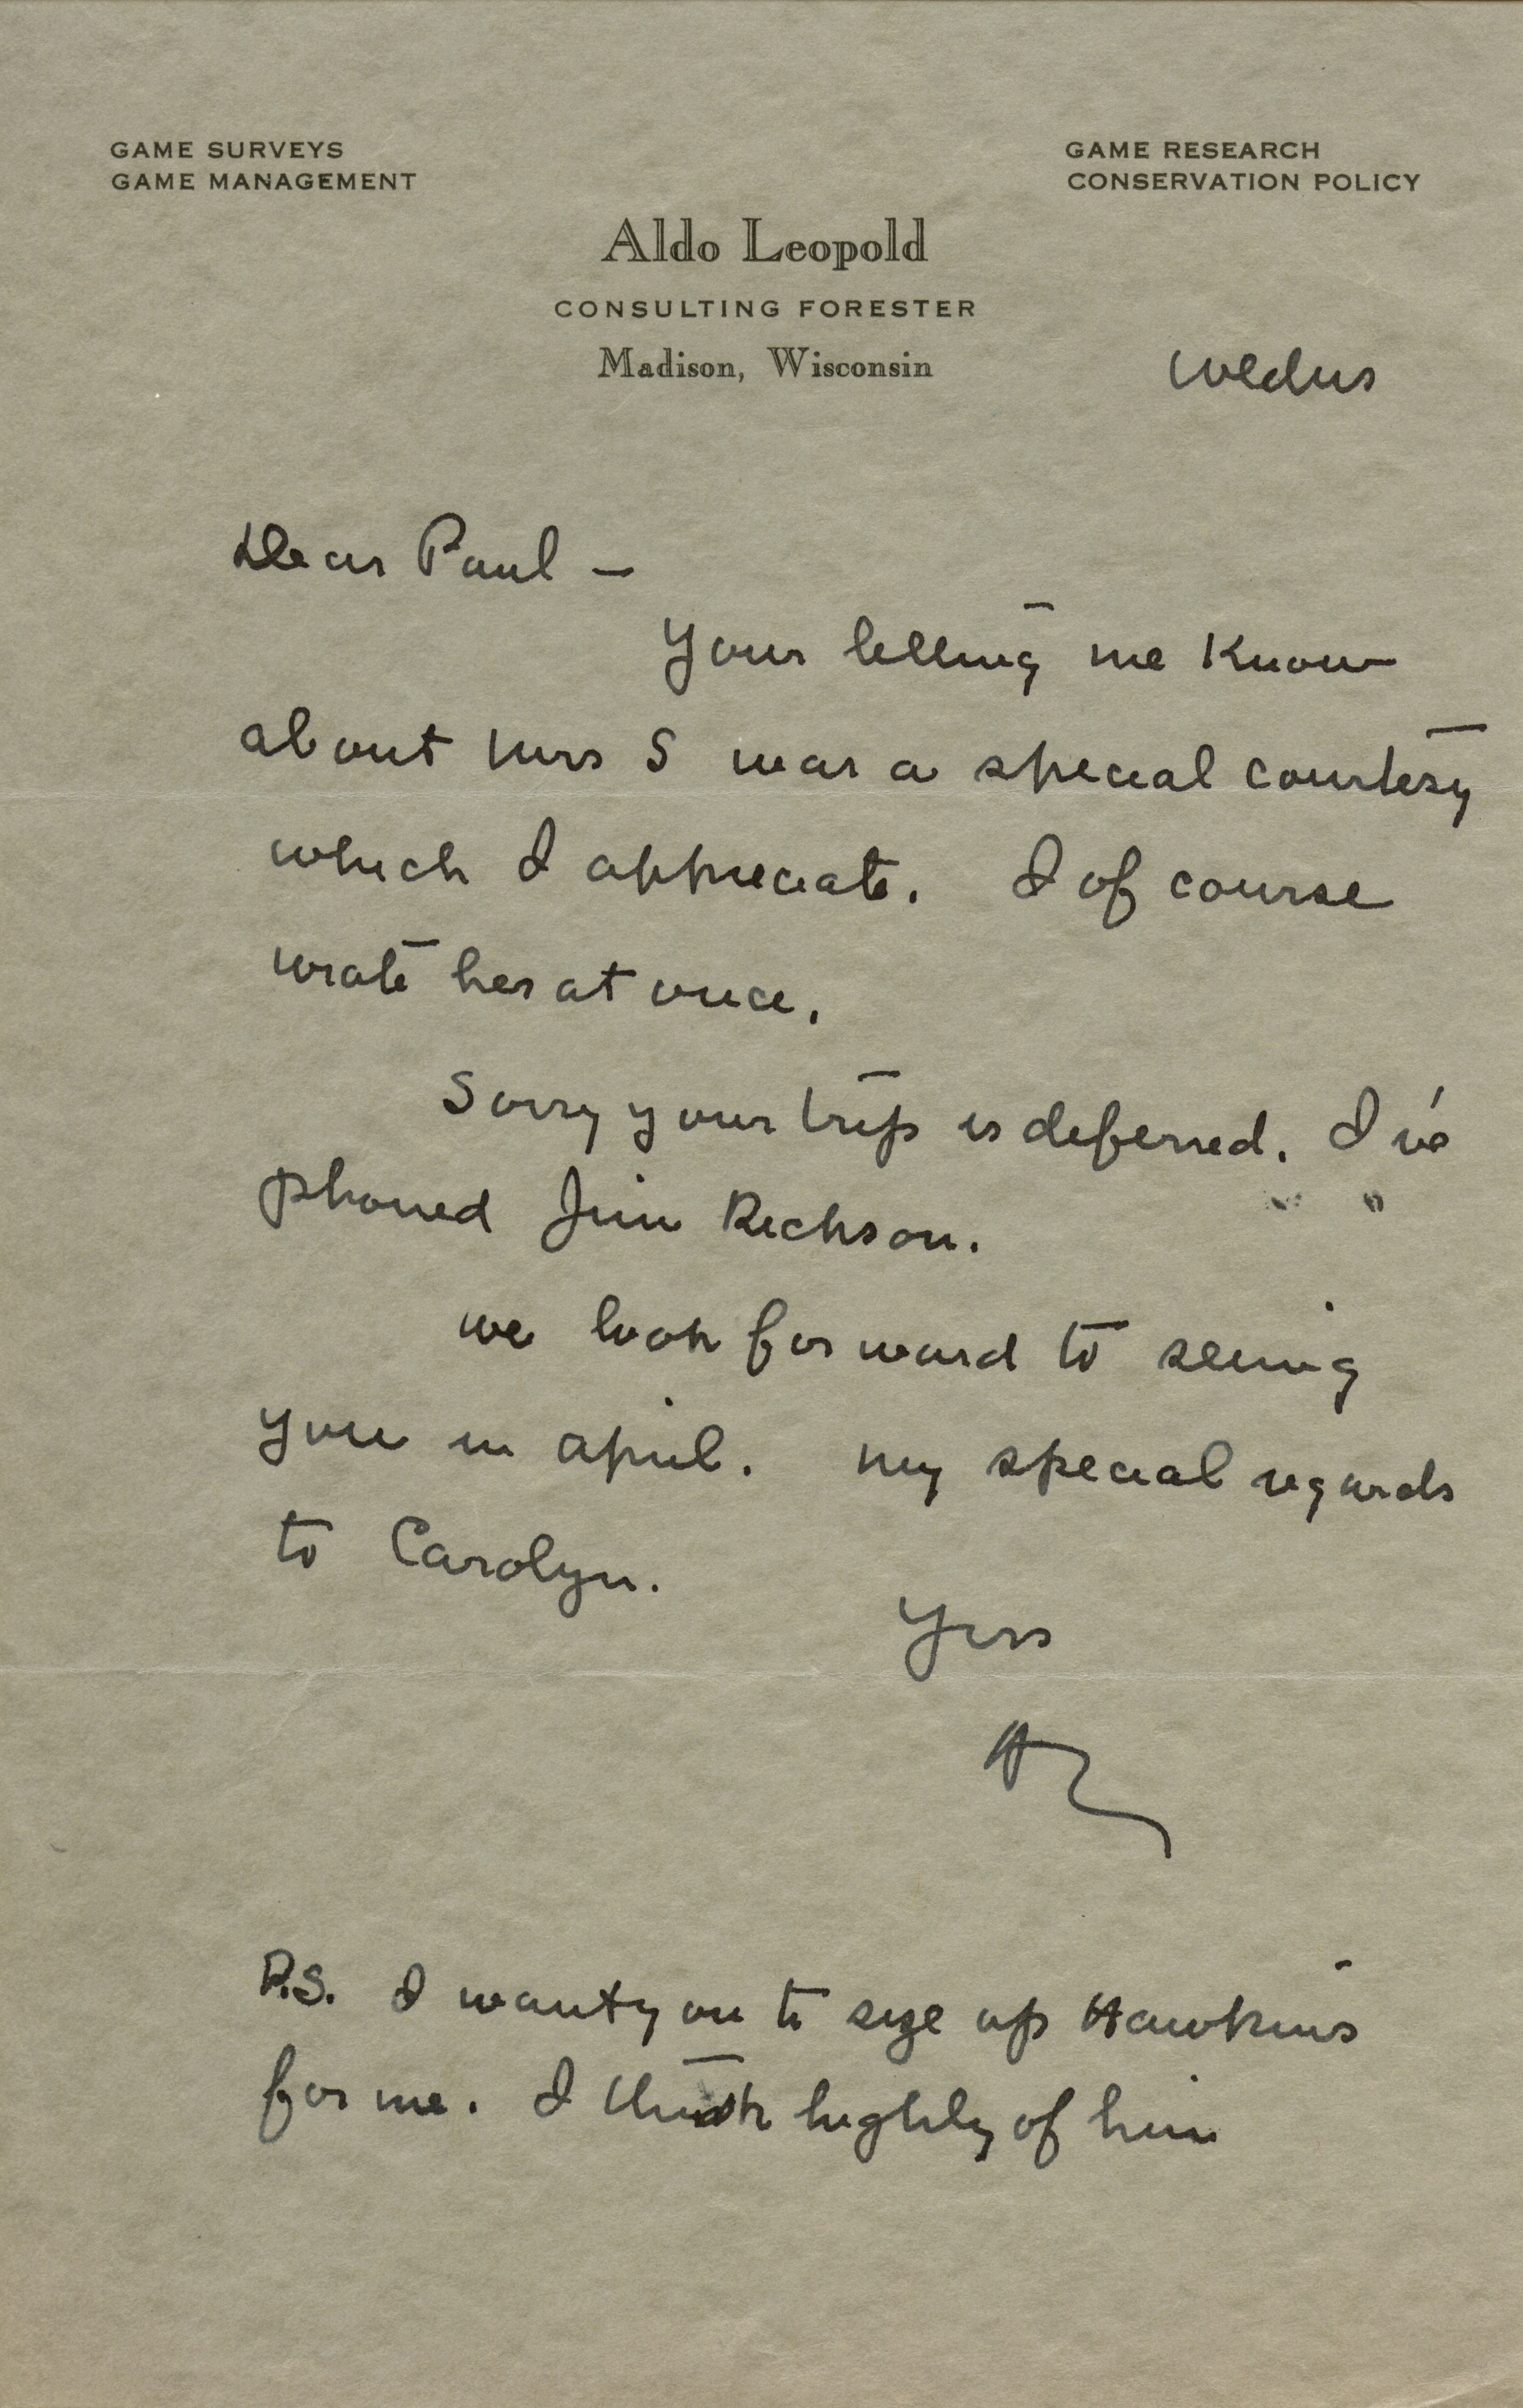 GAME SURVEYS
GAME MANAGEMENT
GAME RESEARCH
CONSERVATION POLICY
Aldo Leopold
CONSULTING FORESTER
Madison, Wisconsin
Wednes
Dear Paul –
Your letting me know
about Mrs S was a special courtesy
which I appreciate. I of course
wrote her at once.
Sorry your trip is deferred. I've
phoned Jim
We look forward to seeing
you in April. My special regards
to Carolyn.
Yrs
AL
P.S. I want you to size up Hawkins
for me. I think highly of him